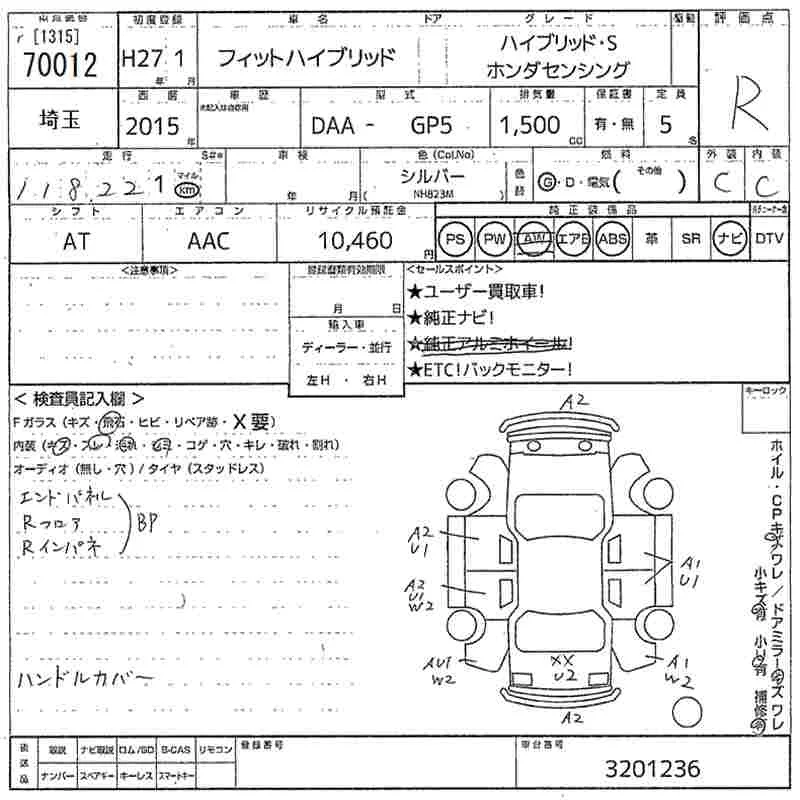 [1315]
70012
初度登録
H27 1
年 月
車名 ドア グレード
フィットハイブリッド
ハイブリッド・S
ホンダセンシング
評価点
R
埼玉
西暦
2015
年
車歴
型式
DAA - GP5
排気量
1,500
CC
保証書
有・無
定員
5
走行
118,221
マイル
km
車検
年 月
色 (Col,No)
シルバー
NH823M
色替
燃料
G・D・電気( その他 )
外装
C
内装
C
シフト
AT
エアコン
AAC
リサイクル預託金
10,460
円
純正装備品
PS PW AW エアB ABS 革 SR ナビ DTV
<注意事項>
登録書類有効期限
月 日
輸入車
ディーラー・並行
左H ・ 右H
<セールスポイント>
★ユーザー買取車!
★純正ナビ!
★純正アルミホイール!
★ETC!バックモニター!
キーロック
< 検査員記入欄 >
Fガラス (キズ・飛石・ヒビ・リペア跡・X要)
内装 (キズ・スレ・汚れ・シミ・コゲ・穴・キレ・破れ・割れ)
オーディオ (無し・穴) / タイヤ (スタッドレス)
エンドパネル
Rフロア
Rインパネ
BP
ハンドルカバー
A2
A2
U1
A1
U1
A2
U1
W2
AU1
W2
XX
U2
A1
W2
A2
ホイル・CPキズワレ/ドアミラーキズワレ
小キズ有 小U有 補修有
後送品
取説 ナビ取説 ロム/SD B-CAS リモコン
ナンバー スペアキー キーレス スマートキー
登録番号
車台番号
3201236